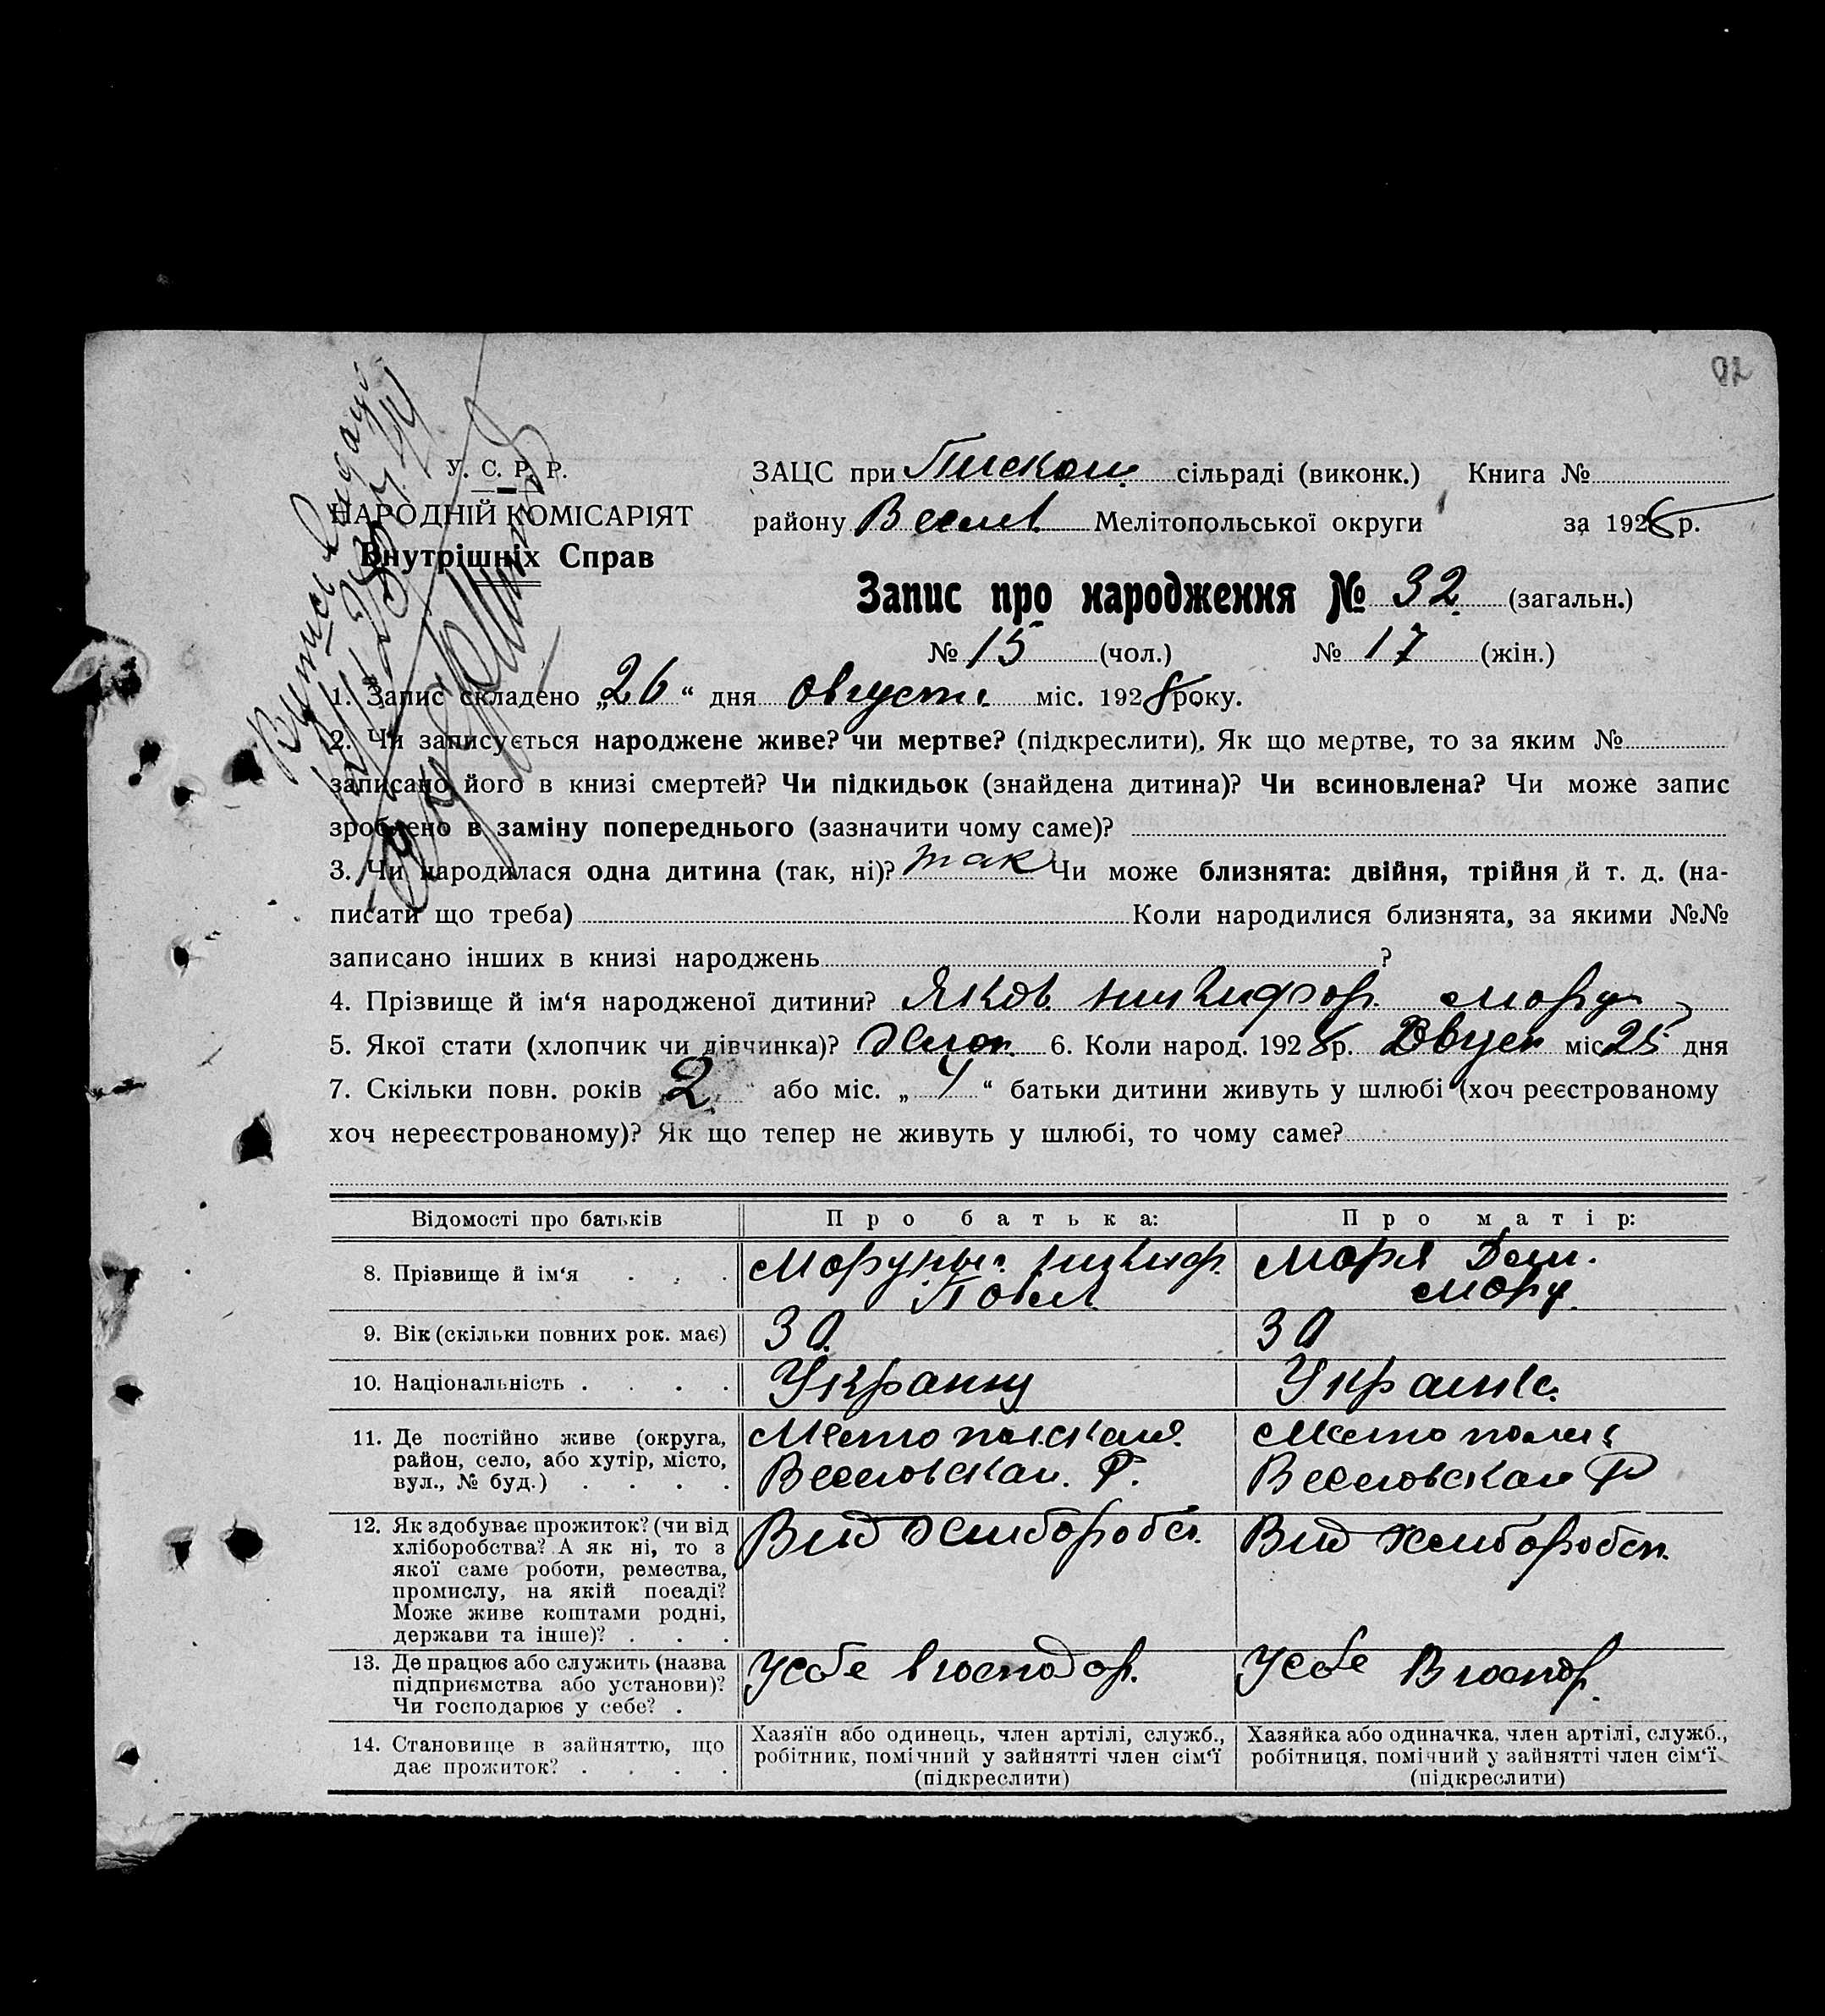 92
У. С. Р. Р.
НАРОДНІЙ КОМІСАРІЯТ
Внутрішніх Справ
ЗАЦС при Пискош. сільраді (виконк.) Книга №
району Весел. Мелітопольської округи за 1928 р.
Запис про народження № 32. (загальн.)
№ 15 (чол.) № 17 (жін.)
1. Запис складено „26“ дня августа міс. 1928 року.
2. Чи записується народжене живе? чи мертве? (підкреслити). Як що мертве, то за яким №
записано його в книзі смертей? Чи підкидьок (знайдена дитина)? Чи всиновлена? Чи може запис
зроблено в заміну попереднього (зазначити чому саме)?
3. Чи народилася одна дитина (так, ні)? так Чи може близнята: двійня, трійня й т. д. (на-
писати що треба) Коли народилися близнята, за якими №№
записано інших в книзі народжень ?
4. Прізвище й ім‘я народженої дитини? Яков Никифор. Мору
5. Якої стати (хлопчик чи дівчинка)? Хлоп. 6. Коли народ. 1928 р. Август міс. 25 дня
7. Скільки повн. років 2 або міс. „ 4 “ батьки дитини живуть у шлюбі (хоч реєстрованому
хоч нереєстрованому)? Як що тепер не живуть у шлюбі, то чому саме?
Відомості про батьків Про батька: Про матір:
8. Прізвище й ім‘я . . . Никиф. Мария Дем.
Павл. Мору.
9. Вік (скільки повних рок. має) 30. 30
10. Національність . . . . Украинц Украинк.
11. Де постійно живе (округа,
район, село, або хутір, місто,
вул., № буд.) . . . .
Веселовская. Р. Веселовская Р
12. Як здобуває прожиток? (чи від
хліборобства? А як ні, то з
якої саме роботи, ремества,
промислу, на якій посаді?
Може живе коштами родні,
держави та інше)? . . .
Вид Хлиборобст. Вид Хлиборобст.
13. Де працює або служить (назва
підприємства або установи)?
Чи господарює у себе? .
Усебе в господар. Усебе В господ.
14. Становище в зайняттю, що
дає прожиток? . . . .
Хазяїн або одинець, член артілі, служб.,
робітник, помічний у зайнятті член сім‘ї
(підкреслити)
Хазяйка або одиначка, член артілі, служб.,
робітниця, помічний у зайнятті член сім‘ї
(підкреслити)